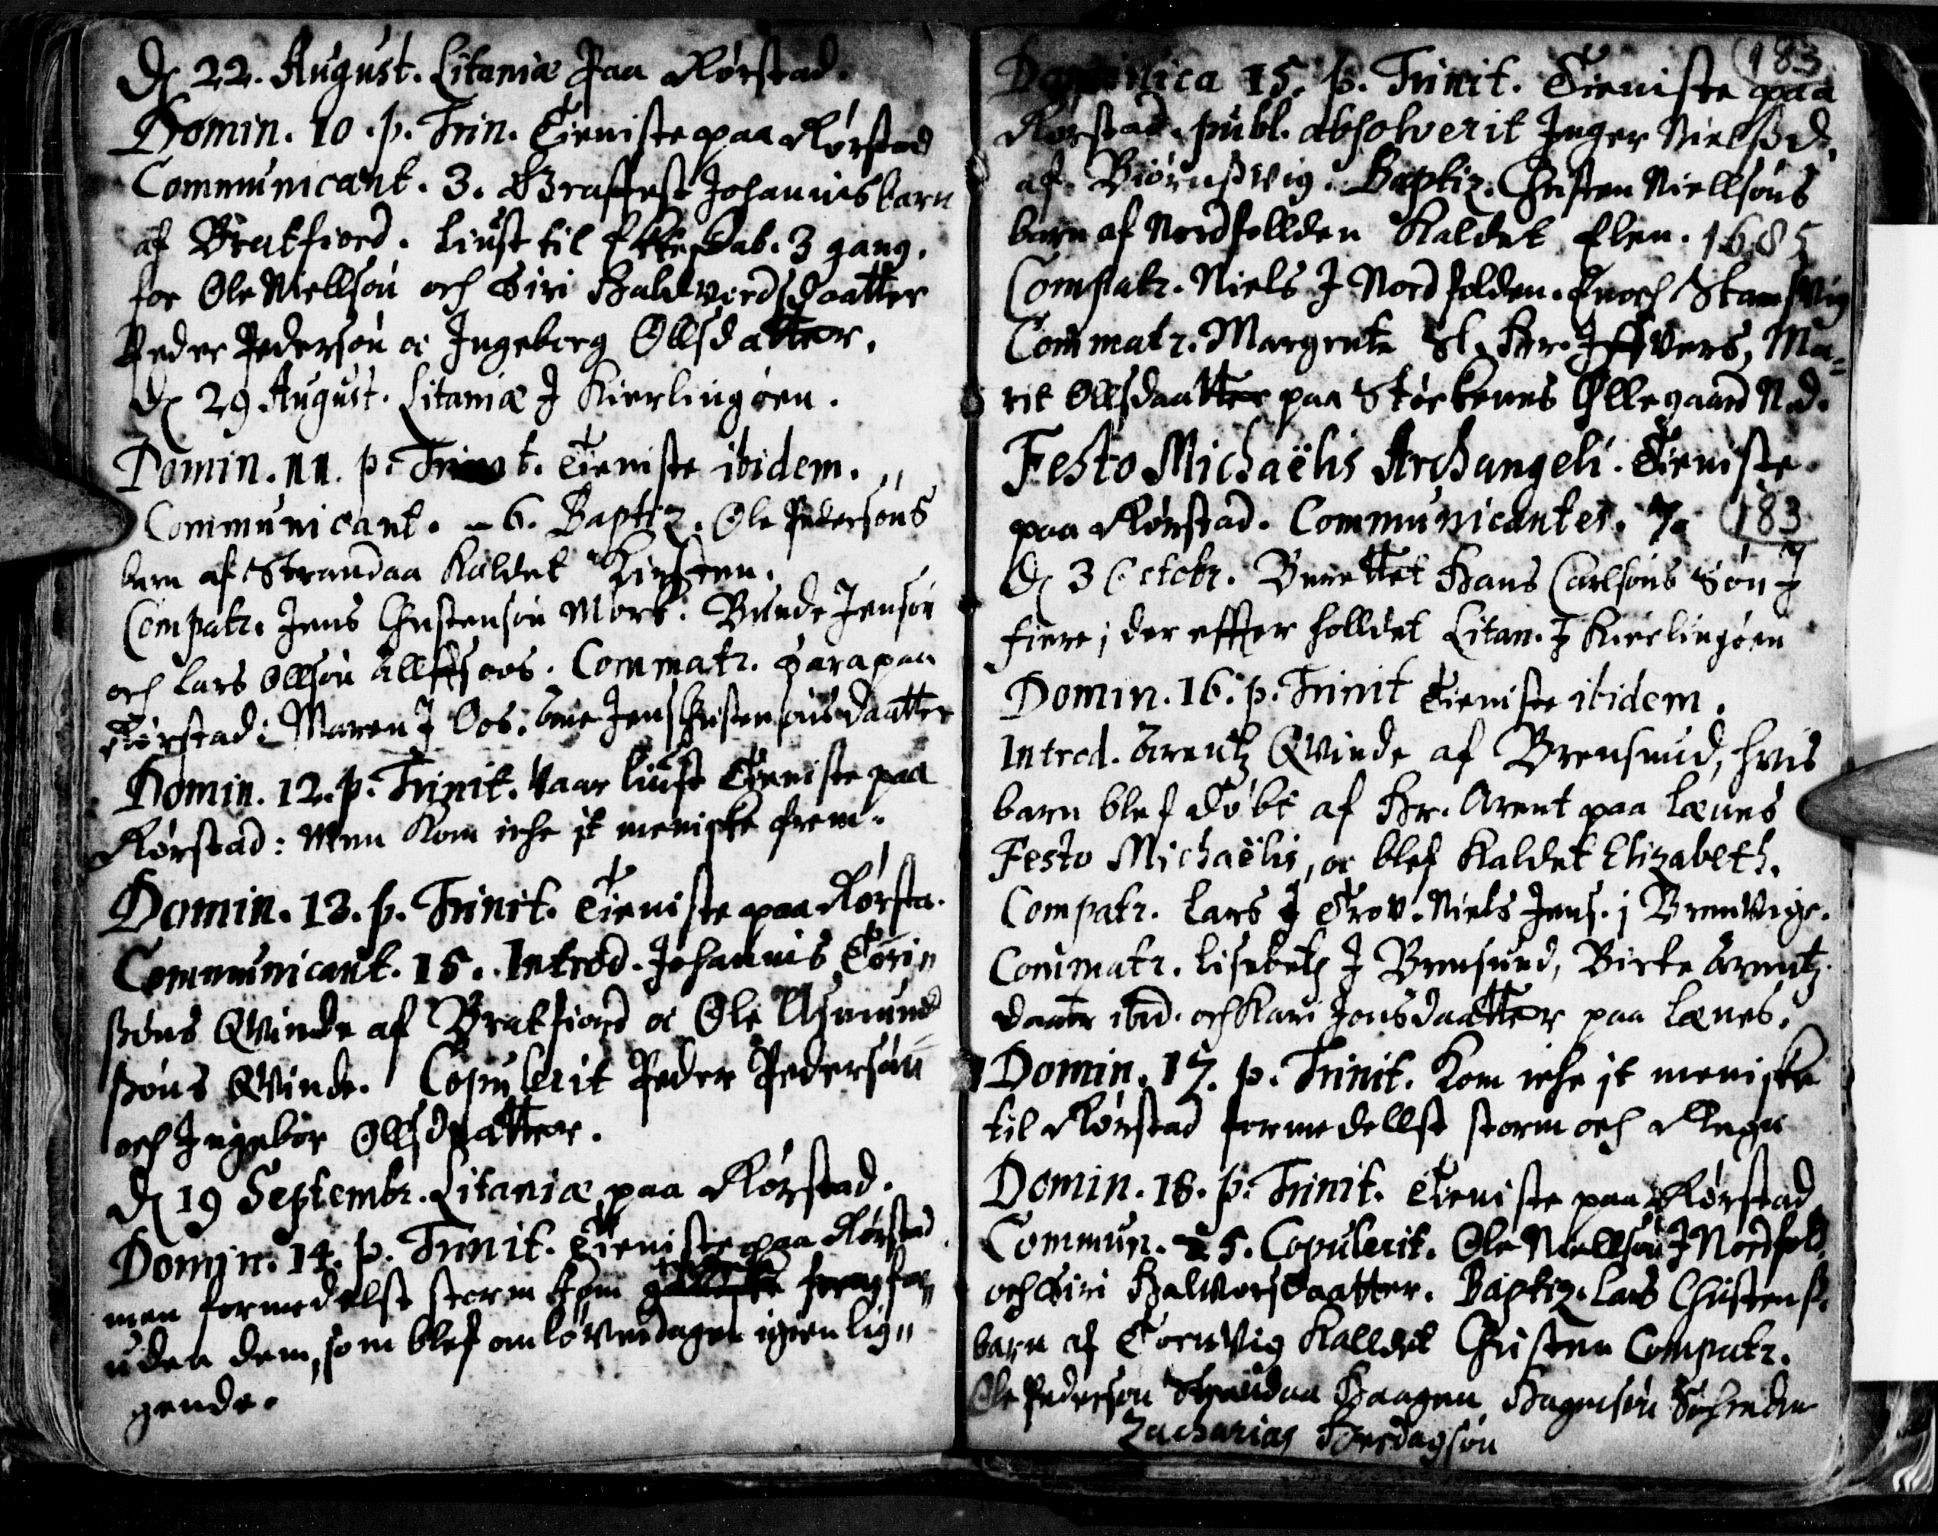 D. 22. August. Litaniæ paa Rørstad.
Domin. 10. p. Trin. Tieniste paa Rørstad
Communicant. 3. Graffest Johannis barn
af Bratfiord. liust til Ekteskab. 3 gang.
for Ole Niellsøn och Siri Haldvordsdaatter
Peder Pedersøn oc Ingeborg Ollsdatter.
D. 29 August. Litaniæ J Kierlingøen.
Domin. 11. p. Trinit. Tieniste ibidem.
Communicant. 6. Baptiz. Ole Pedersøns
barn af Strandaa Kaldet Kirsten.
Compatr. Jens Christensøn Mørk. Bunde Jensøn
och Lars Ollsøn . Commatr. Sara paa
Rørstad: Maren J Oos. Jens Christensøns daatter
Domin. 12. p. Trinit. Vaar liust Tieniste paa
Rørstad: Men Kom iche it meniske frem.
Domin. 13. p. Trinit. Tieniste paa Rørsta.
Communicant. 15. Introd. Johannis Tori„
søns Qvinde af Bratfiord oc Ole Asmund
søns Qvinde. Copulerit Peder Pedersøn
och Ingebor Ollsdaatter.
D. 19 Septembr. Litaniæ paa Rørstad.
Domin. 14. p. Trinit. Tieniste paa Rørstad
men formedelst storm kom
uden dem, som blef om løverdagen igien lig„
gende.
183
Dominica 15. p. Trinit. Tieniste paa
Rørstad. publ. absolverit Inger Nielsd.
af Biørnsvig. Baptiz. Christen Niellsøns
barn af Nordfollden Kaldet Elen. 1685
Compatr. Niels J Nordfolden. Enoch Stamsvig
Commatr. Margrete Sl. Hr. Iffvers, Ma=
rit Ollsdaatter paa Størkenes Ellegaard N.d.
Festo Michaëlis Archangeli. Tieniste
paa Rørstad. Communicantes. 7. 183
D. 3 Octobr. Berettet Hans Carlsøns Søn J
Fiere; der effter holldet Litan. J Kierlingøen
Domin. 16. p. Trinit Tieniste ibidem.
Introd. Arentz Qvinde af Brensund, hvis
barn blef døbt af Hr. Arent paa Lænes
Festo Michaëlis, oc blef Kaldet Elizabeth.
Compatr. Lars J Trov. Niels Jens. i Brenvige.
Commatr. Lisebeth J Brensund, Birte Arentz
daatr ibid. och Kari Jonsdaatter paa Lænes.
Domin. 17. p. Trinit. Kom iche it meniske
til Rørstad formedellst storm och Regn
Domin. 18. p. Trinit. Tieniste paa Rørstad
Commun. 5. Copulerit. Ole Niellsøn J Nordfold.
och Siri Halvorsdaatter. Baptiz. Lars Christens.
barn af Tornvig Kalldet Christen Compatr.
Ole Pedersøn Strandaa Haagen Hagensøn
Zacharias Herdagsøn